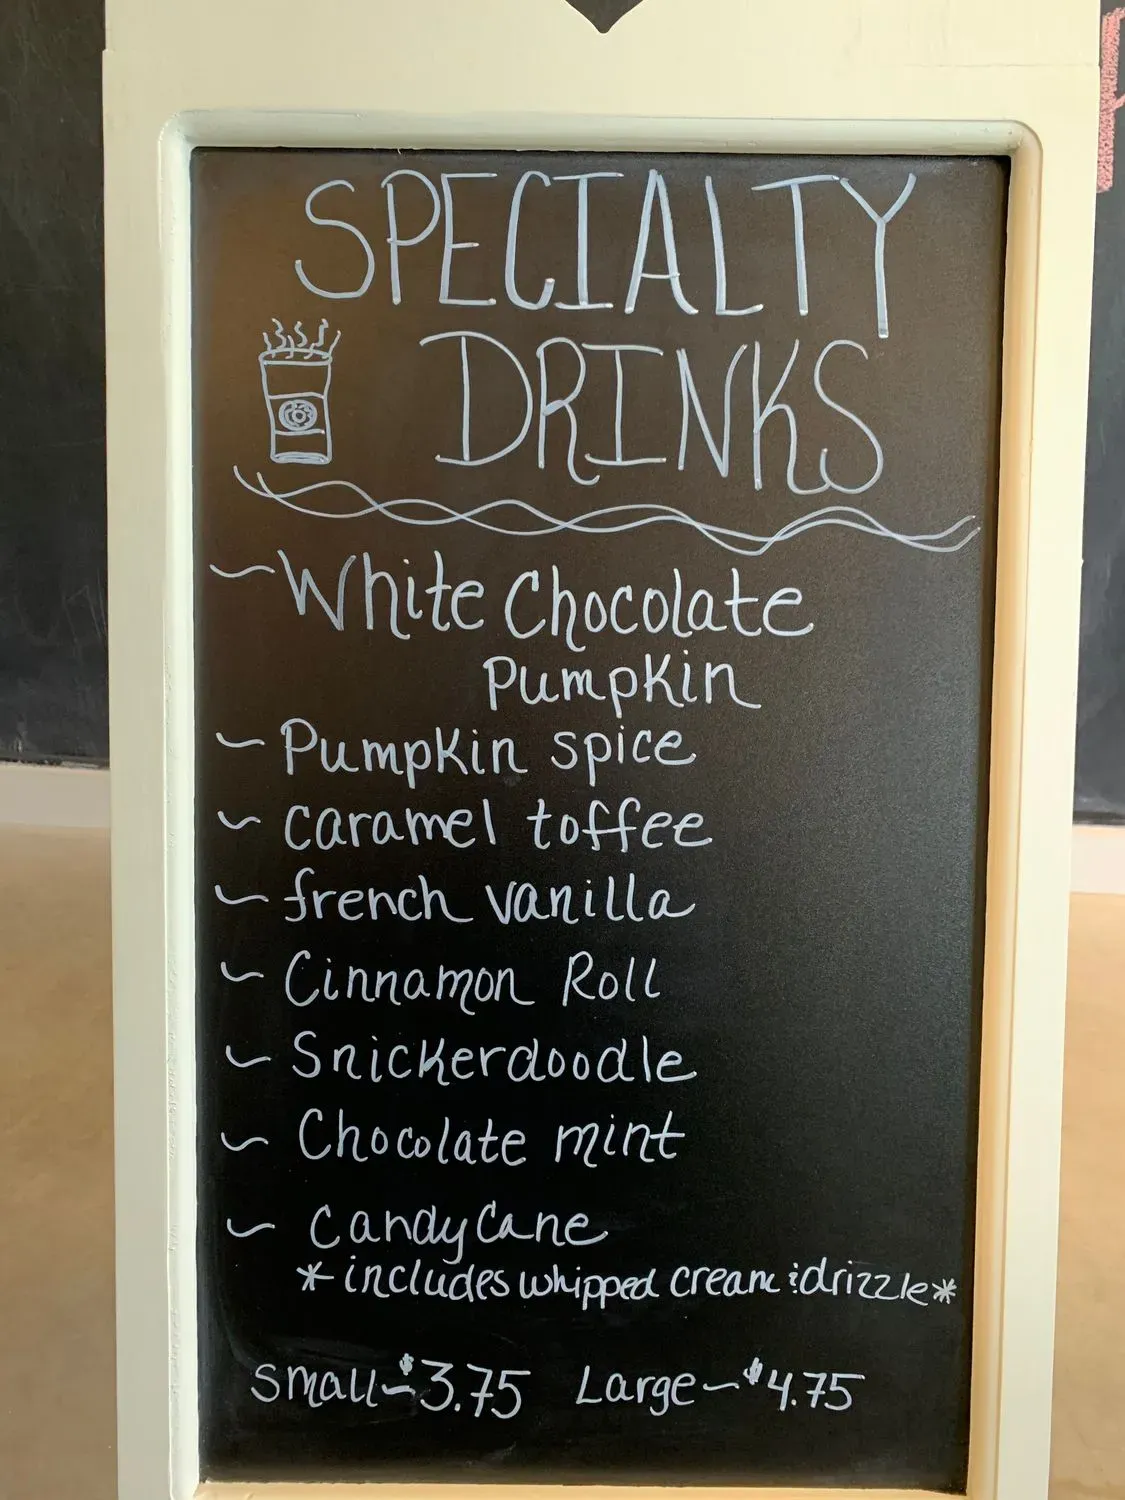 SPECIALTY
DRINKS
~ White Chocolate
Pumpkin
~ Pumpkin spice
~ caramel toffee
~ french vanilla
~ Cinnamon Roll
~ Snickerdoodle
~ Chocolate mint
~ Candy Cane
*includes whipped cream & drizzle*
Small ~ $3.75 Large ~ $4.75